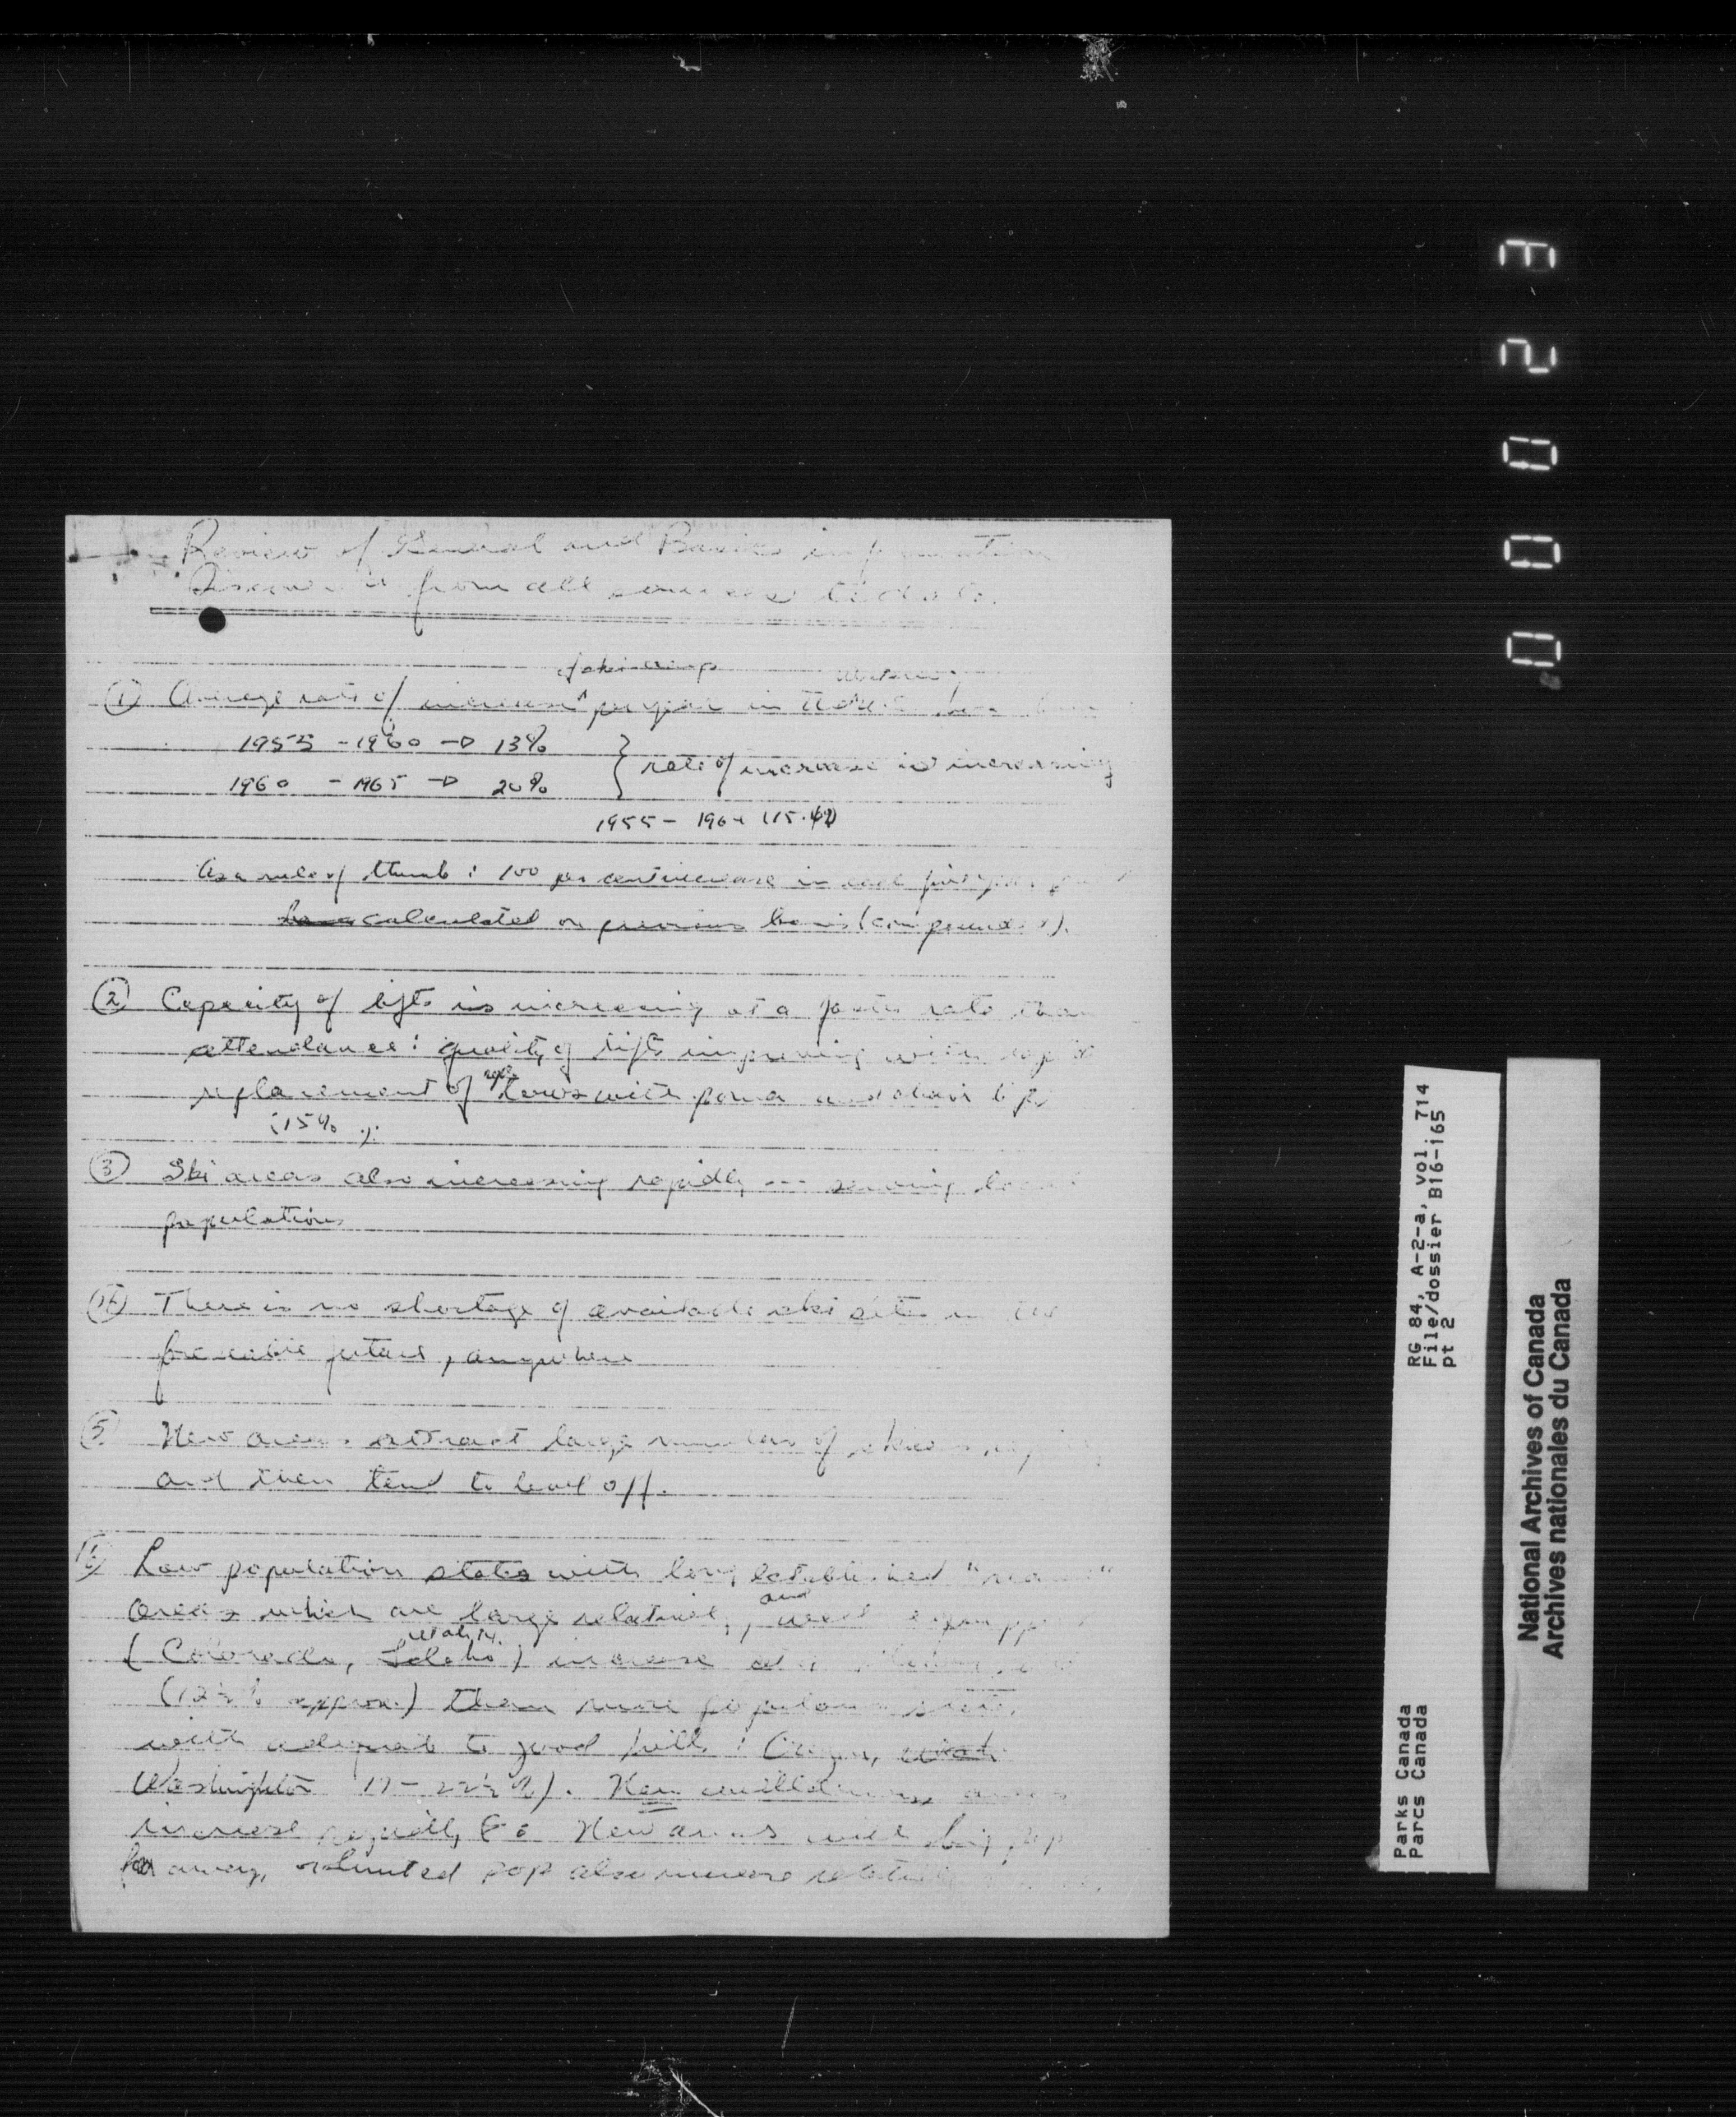 Review of General and Basic information
from all sources to date.
of skiing western
① Average rate of increase ^ per year in the U.S. has been
1955 - 1960 → 13%
1960 - 1965 → 20%
} rate of increase is increasing
1955 - 1964 (15.
As a rule of thumb : 100 per cent increase in each five year
calculated on previous basis (compounded).
② Capacity of lifts is increasing at a faster rate than
attendance : quality of lifts improving with rapid
replacement of rope tows with poma and chair lifts
(15%).
③ Ski areas also increasing rapidly --- serving local
populations
④ There is no shortage of available ski sites in the
foreseeable future, anywhere
⑤ New areas attract large numbers of skiers
and then tend to level off.
⑥ Low population states with long established
areas which are large relatively, and well equipped
(Colorado, Utah, Idaho) increase at a
(12½% approx.) than more populous states
with adequate to good hills : Oregon, Utah
Washington 17 - 22½%). New areas
increase rapidly New areas with big pop
far away, or limited pop also increase relatively
RG 84, A-2-a, vol. 714
File/dossier B16-165
pt 2
Parks Canada
Parcs Canada
National Archives of Canada
Archives nationales du Canada
00023